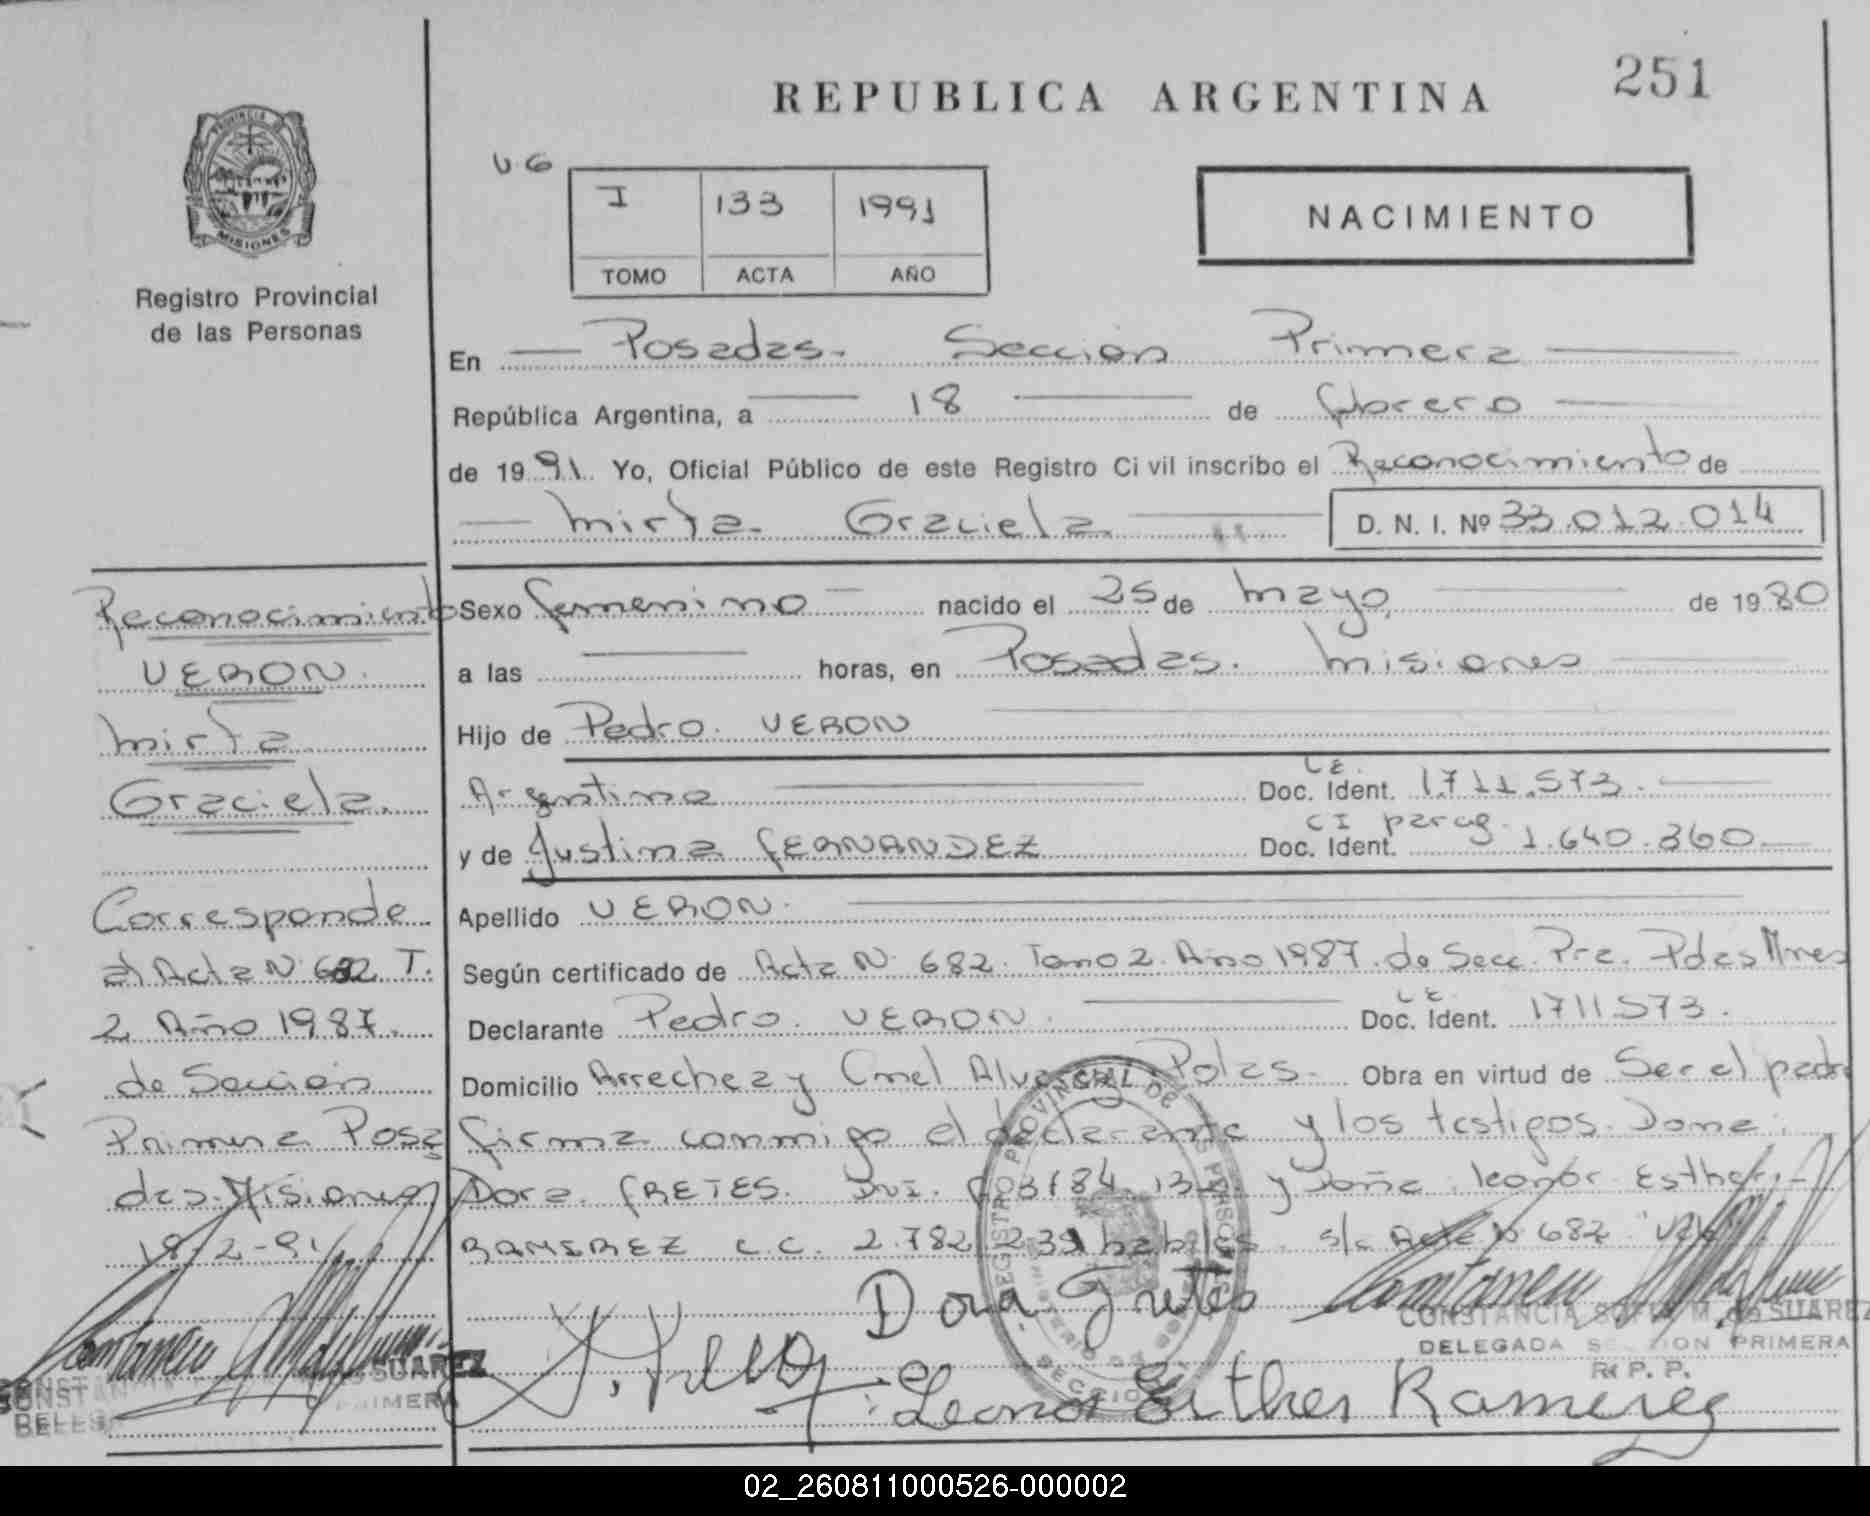 REPUBLICA ARGENTINA
251
PROVINCIA DE
MISIONES
Registro Provincial
de las Personas
I 133 1991
TOMO ACTA AÑO
NACIMIENTO
En Posadas. Sección Primera
República Argentina, a 18 de febrero
de 1991. Yo, Oficial Público de este Registro Civil inscribo el Reconocimiento de
Mirta Graciela D. N. I. Nº 33.012.014
Sexo femenino nacido el 25 de mayo de 1980
a las horas, en Posadas. Misiones
Hijo de Pedro. VERON
Argentino L.E. Doc. Ident. 1.711.573.
y de Justina FERNANDEZ CI parag. Doc. Ident. 1.640.360
Apellido VERON.
Según certificado de Acta Nº 682. Tomo 2. Año 1987. de Secc. Pra. Pdas Mnes
Declarante Pedro. VERON. L.E. Doc. Ident. 1711573.
Domicilio Arrechea y Cnel Obra en virtud de Ser el padre
firma conmigo el declarante y los testigos. Doña:
Dora. FRETES. DNI. y Doña. Leonor Esther
RAMIREZ C.C. 2.782.239 habiles. s/c Acta Nº 682
Reconocimiento
VERON.
Mirta
Graciela.
Corresponde
al Acta Nº 682 T.
2 Año 1987.
de Sección
Primera Posa
das. Misiones
18-2-91
Dora Fretes
Leonor Esther Ramirez
CONSTANCIA SOFIA M. de SUAREZ
DELEGADA SECCION PRIMERA
R. P. P.
SUAREZ
REGISTRO PROVINCIAL DE
SECCION
02_260811000526-000002